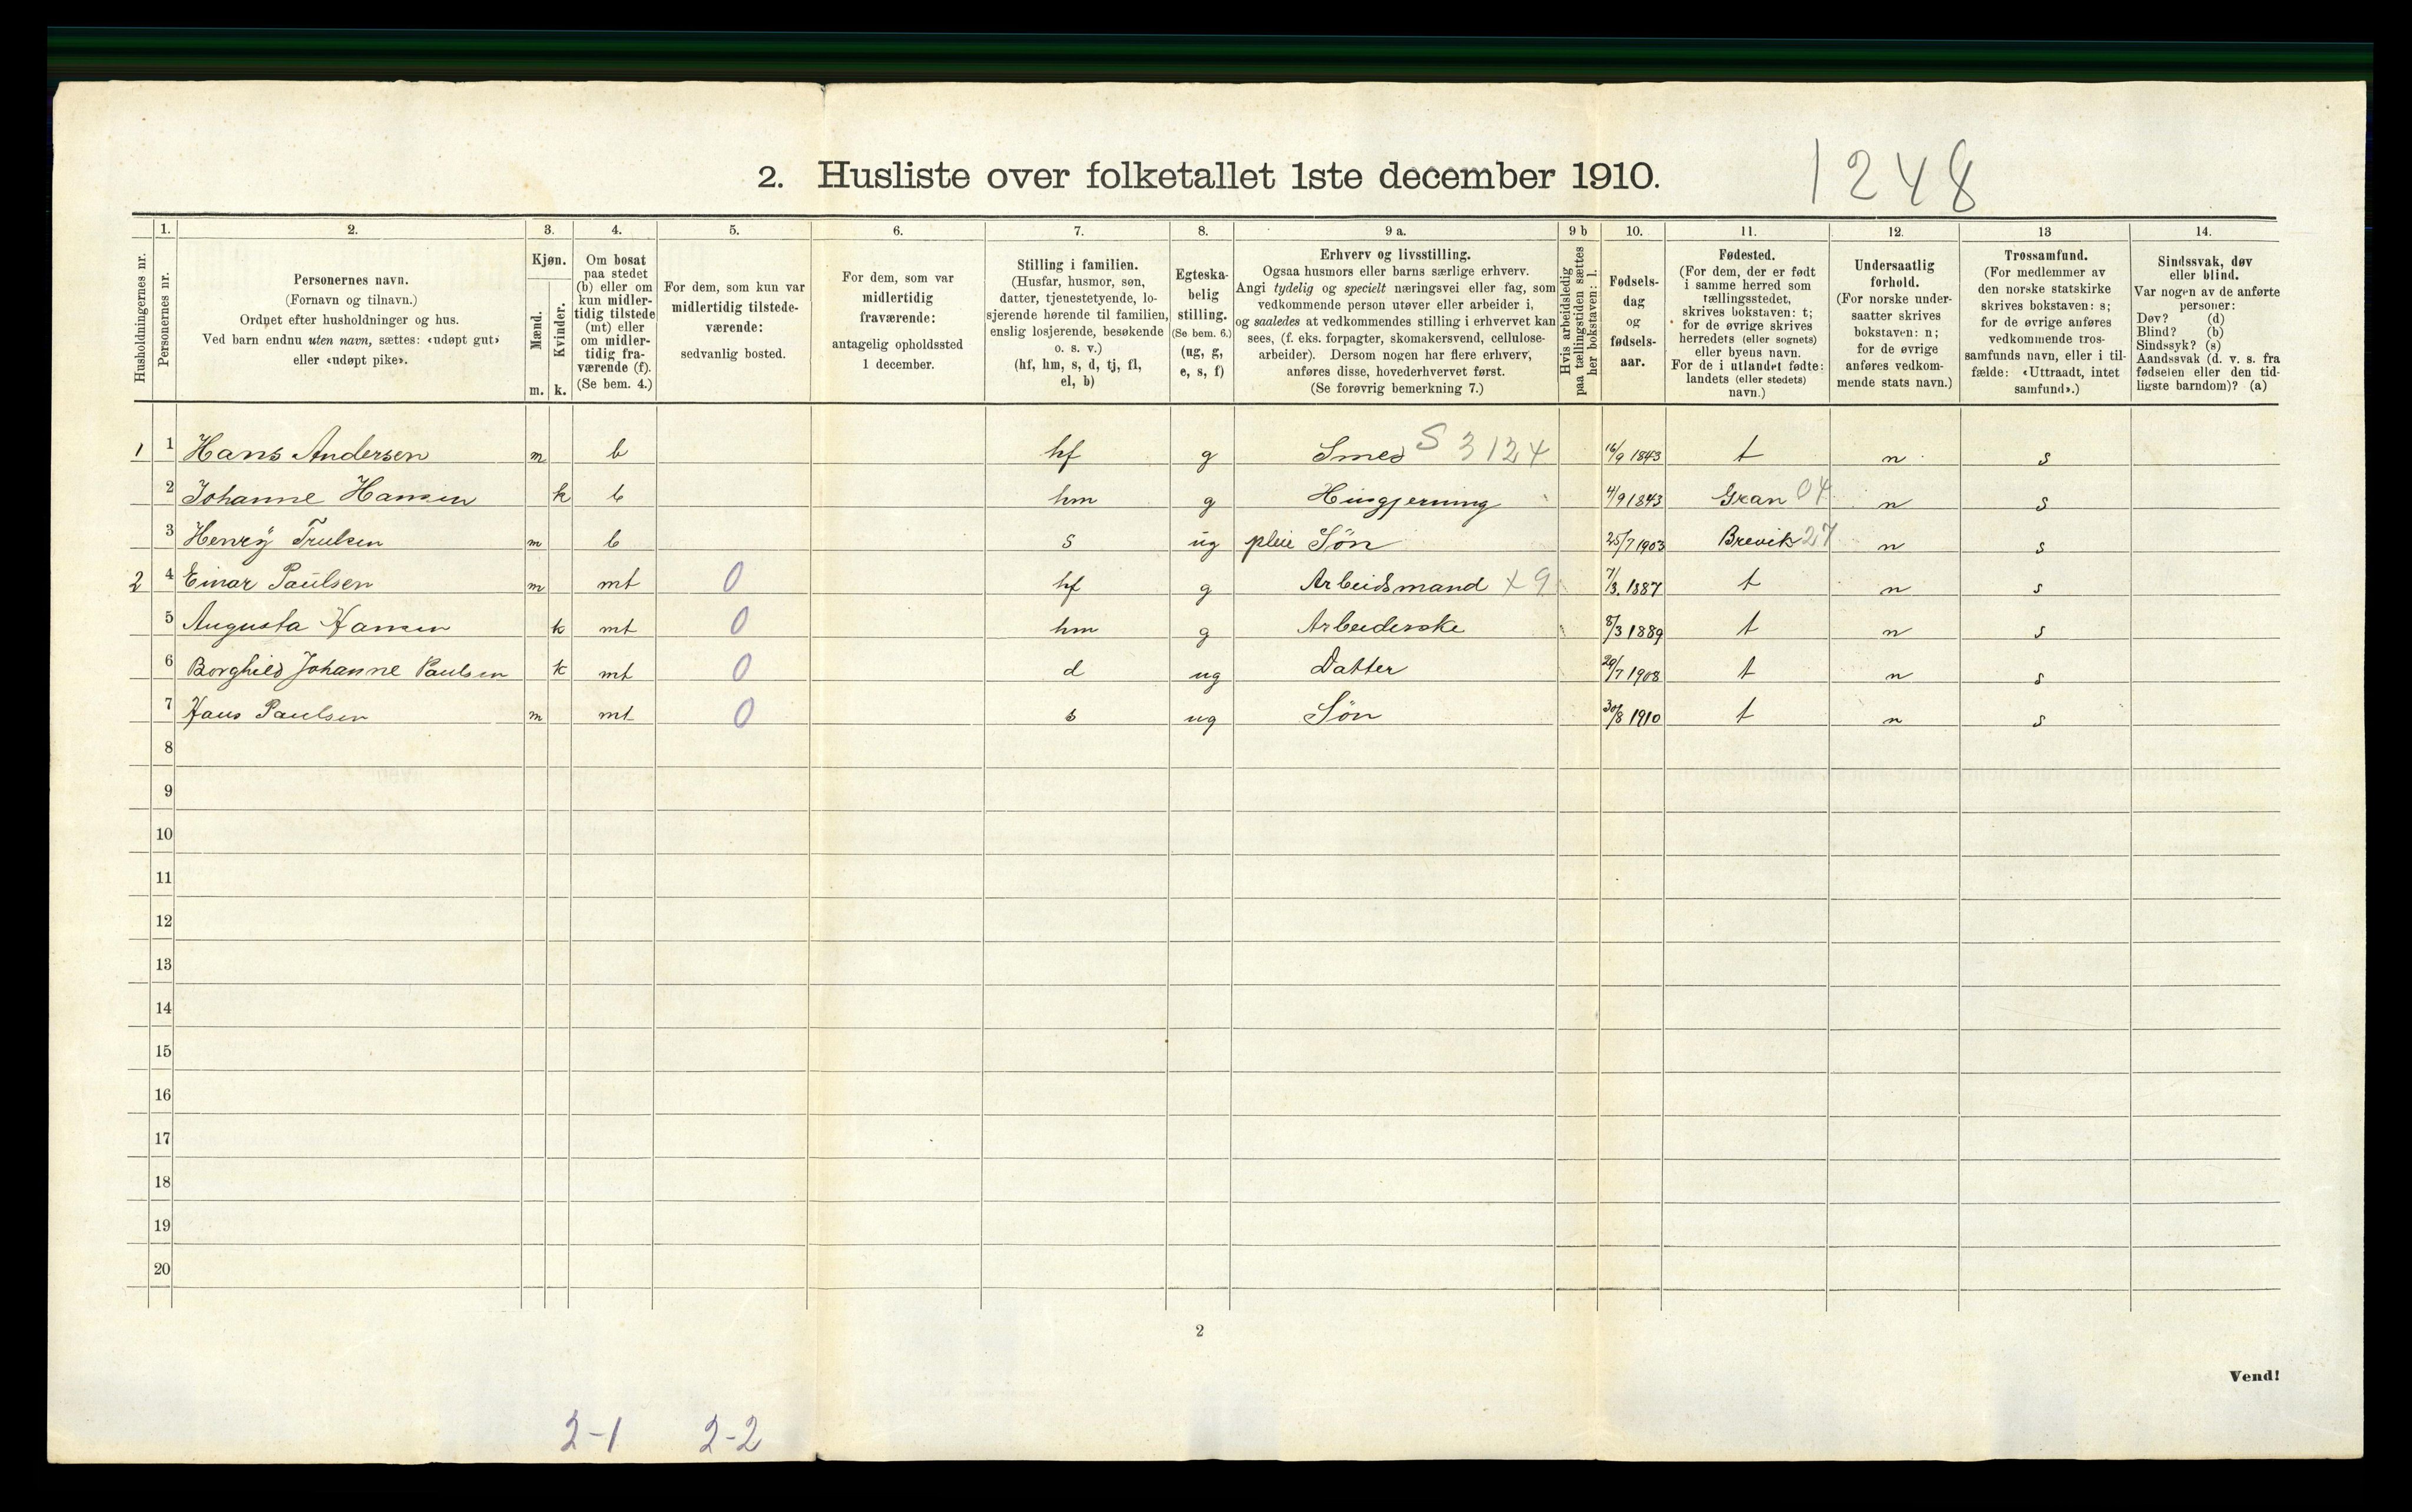 2. Husliste over folketallet 1ste december 1910. 1248
Husholdningernes nr.
1.
Personernes nr.
2.
Personernes navn.
(Fornavn og tilnavn.)
Ordnet efter husholdninger og hus.
Ved barn endnu uten navn, sættes: «udøpt gut»
eller «udøpt pike».
3.
Kjøn.
Mænd.
m.
Kvinder.
k.
4.
Om bosat
paa stedet
(b) eller om
kun midler-
tidig tilstede
(mt) eller
om midler-
tidig fra-
værende (f).
(Se bem. 4.)
5.
For dem, som kun var
midlertidig tilstede-
værende:
sedvanlig bosted.
6.
For dem, som var
midlertidig
fraværende:
antagelig opholdssted
1 december.
7.
Stilling i familien.
(Husfar, husmor, søn,
datter, tjenestetyende, lo-
sjerende hørende til familien,
enslig losjerende, besøkende
o. s. v.)
(hf, hm, s, d, tj, fl,
el, b)
8.
Egteska-
belig
stilling.
(Se bem. 6.)
(ug, g,
e, s, f)
9 a.
Erhverv og livsstilling.
Ogsaa husmors eller barns særlige erhverv.
Angi tydelig og specielt næringsvei eller fag, som
vedkommende person utøver eller arbeider i,
og saaledes at vedkommendes stilling i erhvervet kan
sees, (f. eks. forpagter, skomakersvend, cellulose-
arbeider). Dersom nogen har flere erhverv,
anføres disse, hovederhvervet først.
(Se forøvrig bemerkning 7.)
9 b
Hvis arbeidsledig
paa tællingstiden sættes
her bokstaven: l.
10.
Fødsels-
dag
og
fødsels-
aar.
11.
Fødested.
(For dem, der er født
i samme herred som
tællingsstedet,
skrives bokstaven: t;
for de øvrige skrives
herredets (eller sognets)
eller byens navn.
For de i utlandet fødte:
landets (eller stedets)
navn.)
12.
Undersaatlig
forhold.
(For norske under-
saatter skrives
bokstaven: n;
for de øvrige
anføres vedkom-
mende stats navn.)
13
Trossamfund.
(For medlemmer av
den norske statskirke
skrives bokstaven: s;
for de øvrige anføres
vedkommende tros-
samfunds navn, eller i til-
fælde: «Uttraadt, intet
samfund».)
14.
Sindssvak, døv
eller blind.
Var nogen av de anførte
personer:
Døv? (d)
Blind? (b)
Sindssyk? (s)
Aandssvak (d. v. s. fra
fødselen eller den tid-
ligste barndom)? (a)
1 1 Hans Andersen m b hf g Smed S 3124 16/9 1843 t n s
2 Johanne Hansen k b hm g Husgjerning 4/9 1843 Gran 04 n s
3 Henrÿ Trulsen m b s ug pleie Søn 25/7 1903 Brevik 27 n s
2 4 Einar Paulsen m mt 0 hf g Arbeidsmand x 9 7/3. 1887 t n s
5 Augusta Hansen k mt 0 hm g Arbeiderske 8/3 1889 t n s
6 Borghild Johanne Paulsen k mt 0 d ug Datter 29/7 1908 t n s
7 Hans Paulsen m mt 0 s ug Søn 30/8 1910 t n s
8
9
10
11
12
13
14
15
16
17
18
19
20
2
Vend!
2-1 2-2